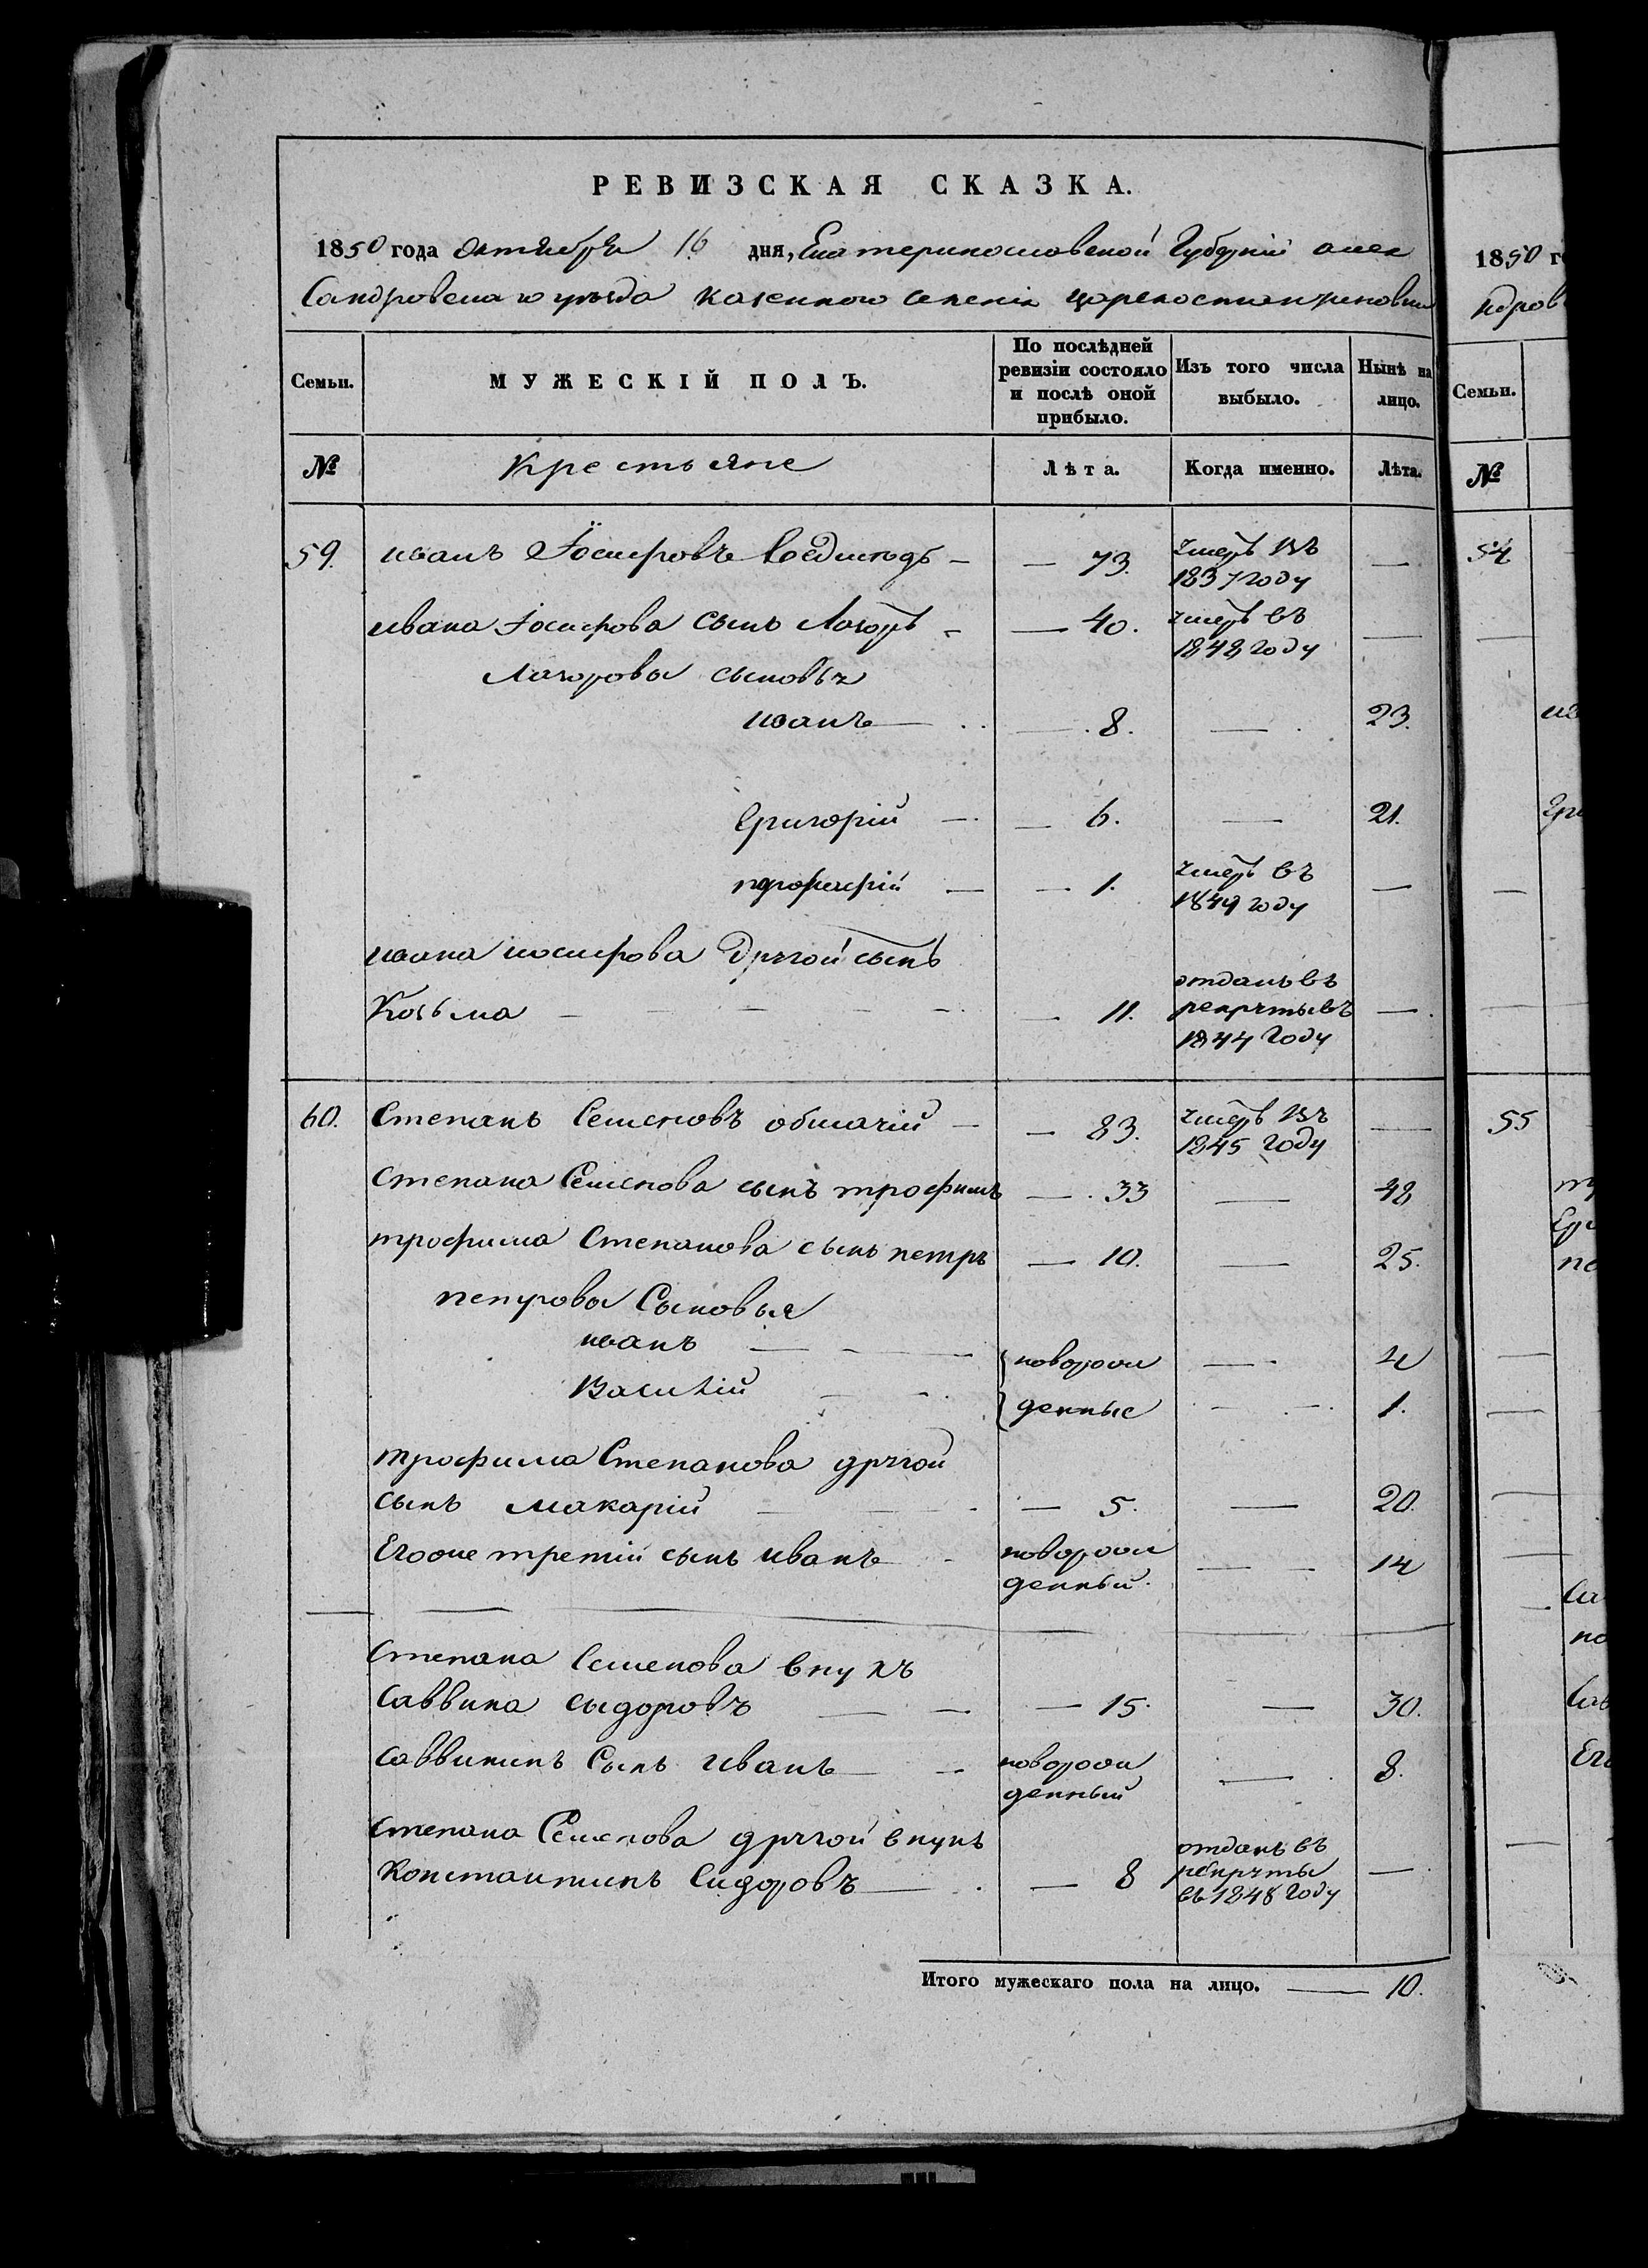 РЕВИЗСКАЯ СКАЗКА.
1850 года октября 16 дня, Екатеринославской Губерніи алек
сандровскаго уезда казенного селенія
Семьи.
МУЖЕСКІЙ ПОЛЪ.
По послѣдней ревизіи состояло и послѣ оной прибыло.
Изъ того числа выбыло.
Нынѣ на лицо.
№
Крестьяне
Лѣта.
Когда именно.
Лѣта.
59. иванъ Іосифовъ — 73. умеръ въ 1837 году —
ивана Іосифова сынъ Лазарь — 40. умеръ въ 1848 году —
Лазаровы сыновья
иванъ — 8. — 23.
Григорій — 6. — 21.
— 1. умеръ въ году —
ивана иосифова другой сынъ
Козьма — 11. отданъ въ рекруты въ 1844 году —
60. Степанъ Семеновъ — 83. умеръ въ 1845 году —
Степана Семенова сынъ трофимъ — 33 — 48
трофима Степанова сынъ петръ — 10. — 25.
петровы Сыновья
иванъ — новорож — 4
Василій — денные — 1.
трофима Степанова другой
сынъ макарій — 5. — 20.
Егоже третій сынъ иванъ — новорож денный. — 14
Степана Семенова внукъ
Саввина сыдоровъ — 15. — 30.
Саввининъ Сынъ иванъ — новорож денный — 8.
Степана Семенова другой внукъ
Константинъ Сидоровъ — 8 отданъ въ рекруты въ 1848 году —
Итого мужескаго пола на лицо. — 10.
1850 г
ндров
Семьи.
№
54
55